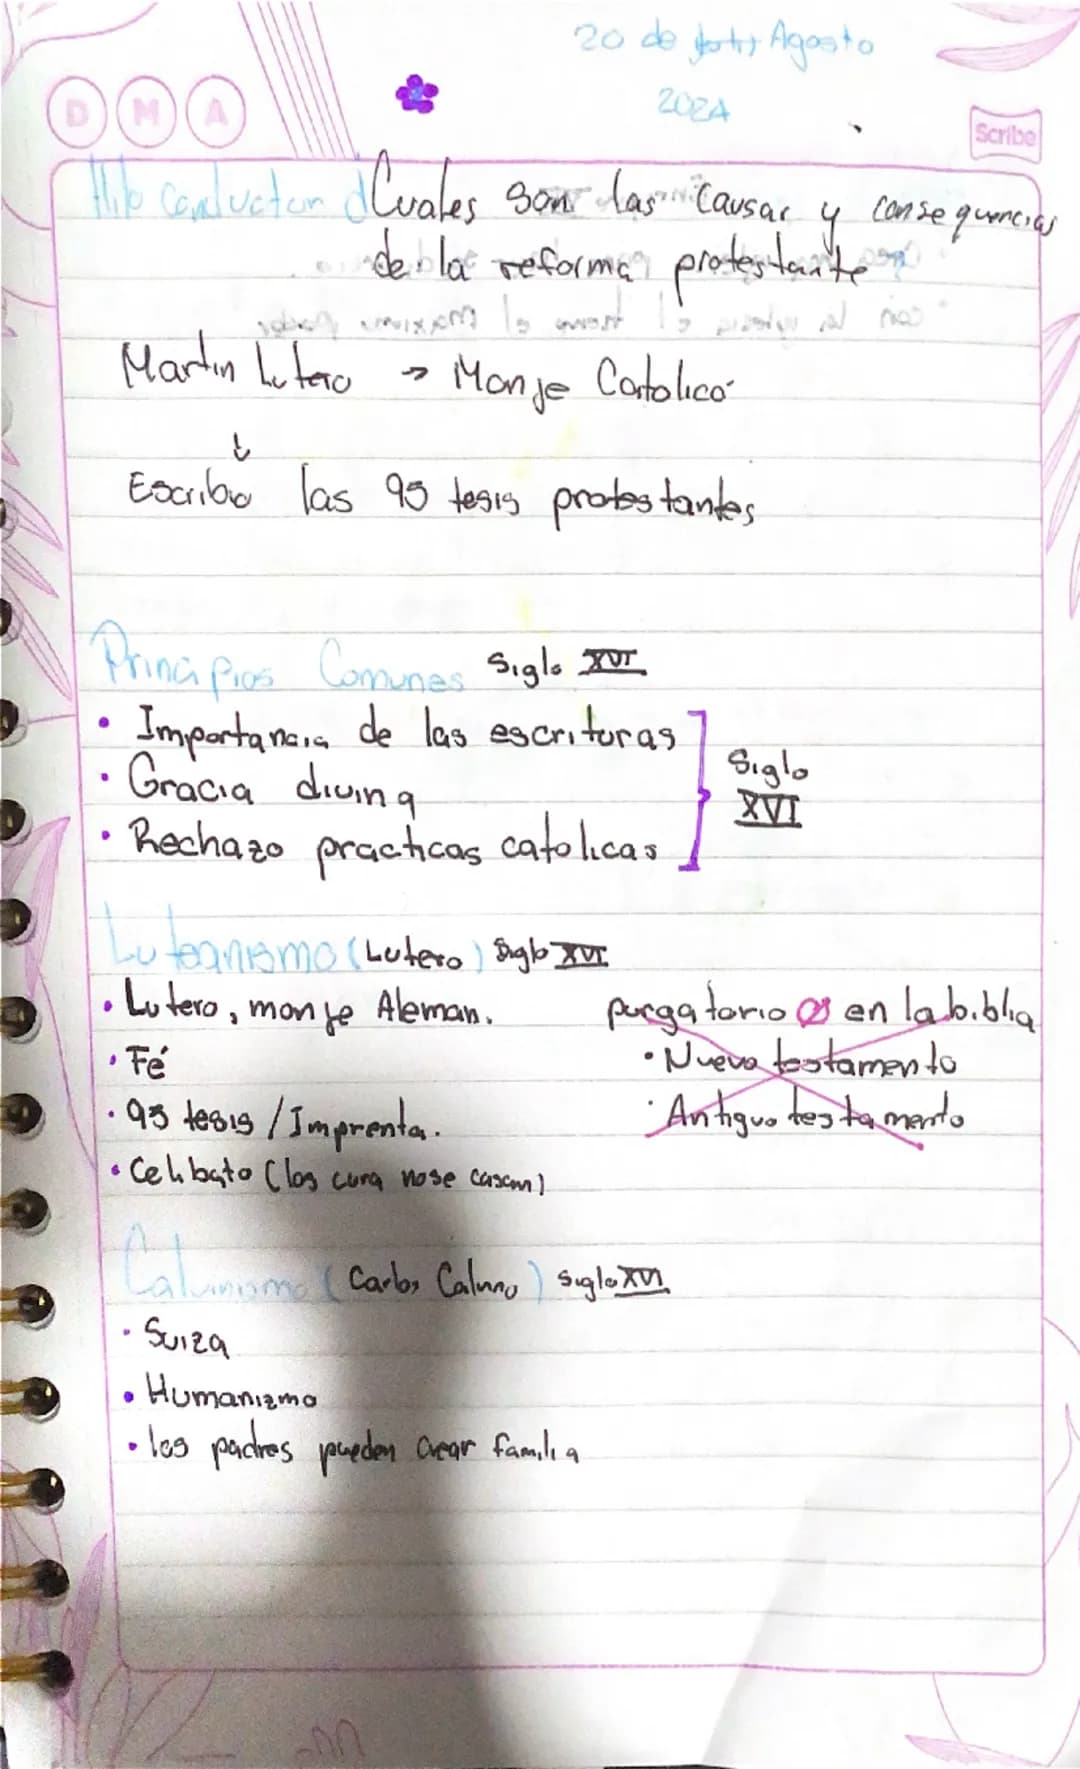 20 de Agosto
2024
D M A
Scribe
Hilo Conductor ¿Cuales son las Causas y consequencias
de la reforma protestante
Martin Lutero → Monje Catolico
↓
Escribio las 95 tesis protestantes
Principios Comunes Siglo XVI
• Importancia de las escrituras
• Gracia divina
• Rechazo practicas catolicas
Siglo
XVI
Luteanismo (Lutero) Siglo XVI
• Lutero, monje Aleman.
• Fé
• 95 tesis / Imprenta.
• Celibato (los cura no se casan)
purgatorio en la biblia
• Nuevo testamento
• Antiguo testamento
Calvinismo (Carlos Calvino) siglo XVI
• Suiza
• Humanizmo
• los padres pueden crear familia